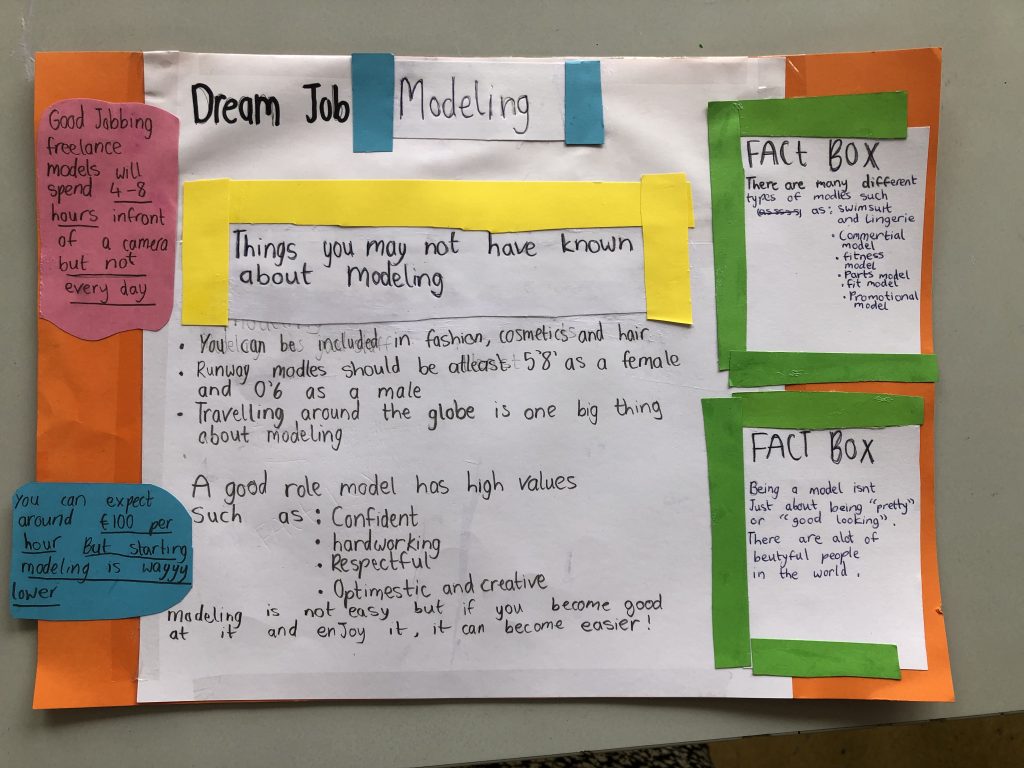 Dream Job Modeling
Good Jobbing
freelance
models will
spend 4-8
hours infront
of a camera
but not
every day
You can expect
around €100 per
hour But starting
modeling is wayyy
lower
Things you may not have known
about Modeling
• You can be included in fashion, cosmetics and hair
• Runway modles should be atleast 5'8' as a female
and 0'6 as a male
• Travelling around the globe is one big thing
about modeling
A good role model has high values
Such as : Confident
• hardworking
• Respectful
• Optimestic and creative
modeling is not easy but if you become good
at it and enjoy it, it can become easier!
FACT BOX
There are many different
types of modles such
as: Swimsuit
and Lingerie
• Commertial
model
• fitness
model
• Parts model
• fit model
• Promotional
model
FACT BOX
Being a model isnt
Just about being "pretty"
or "good looking".
There are alot of
beutyful people
in the world.